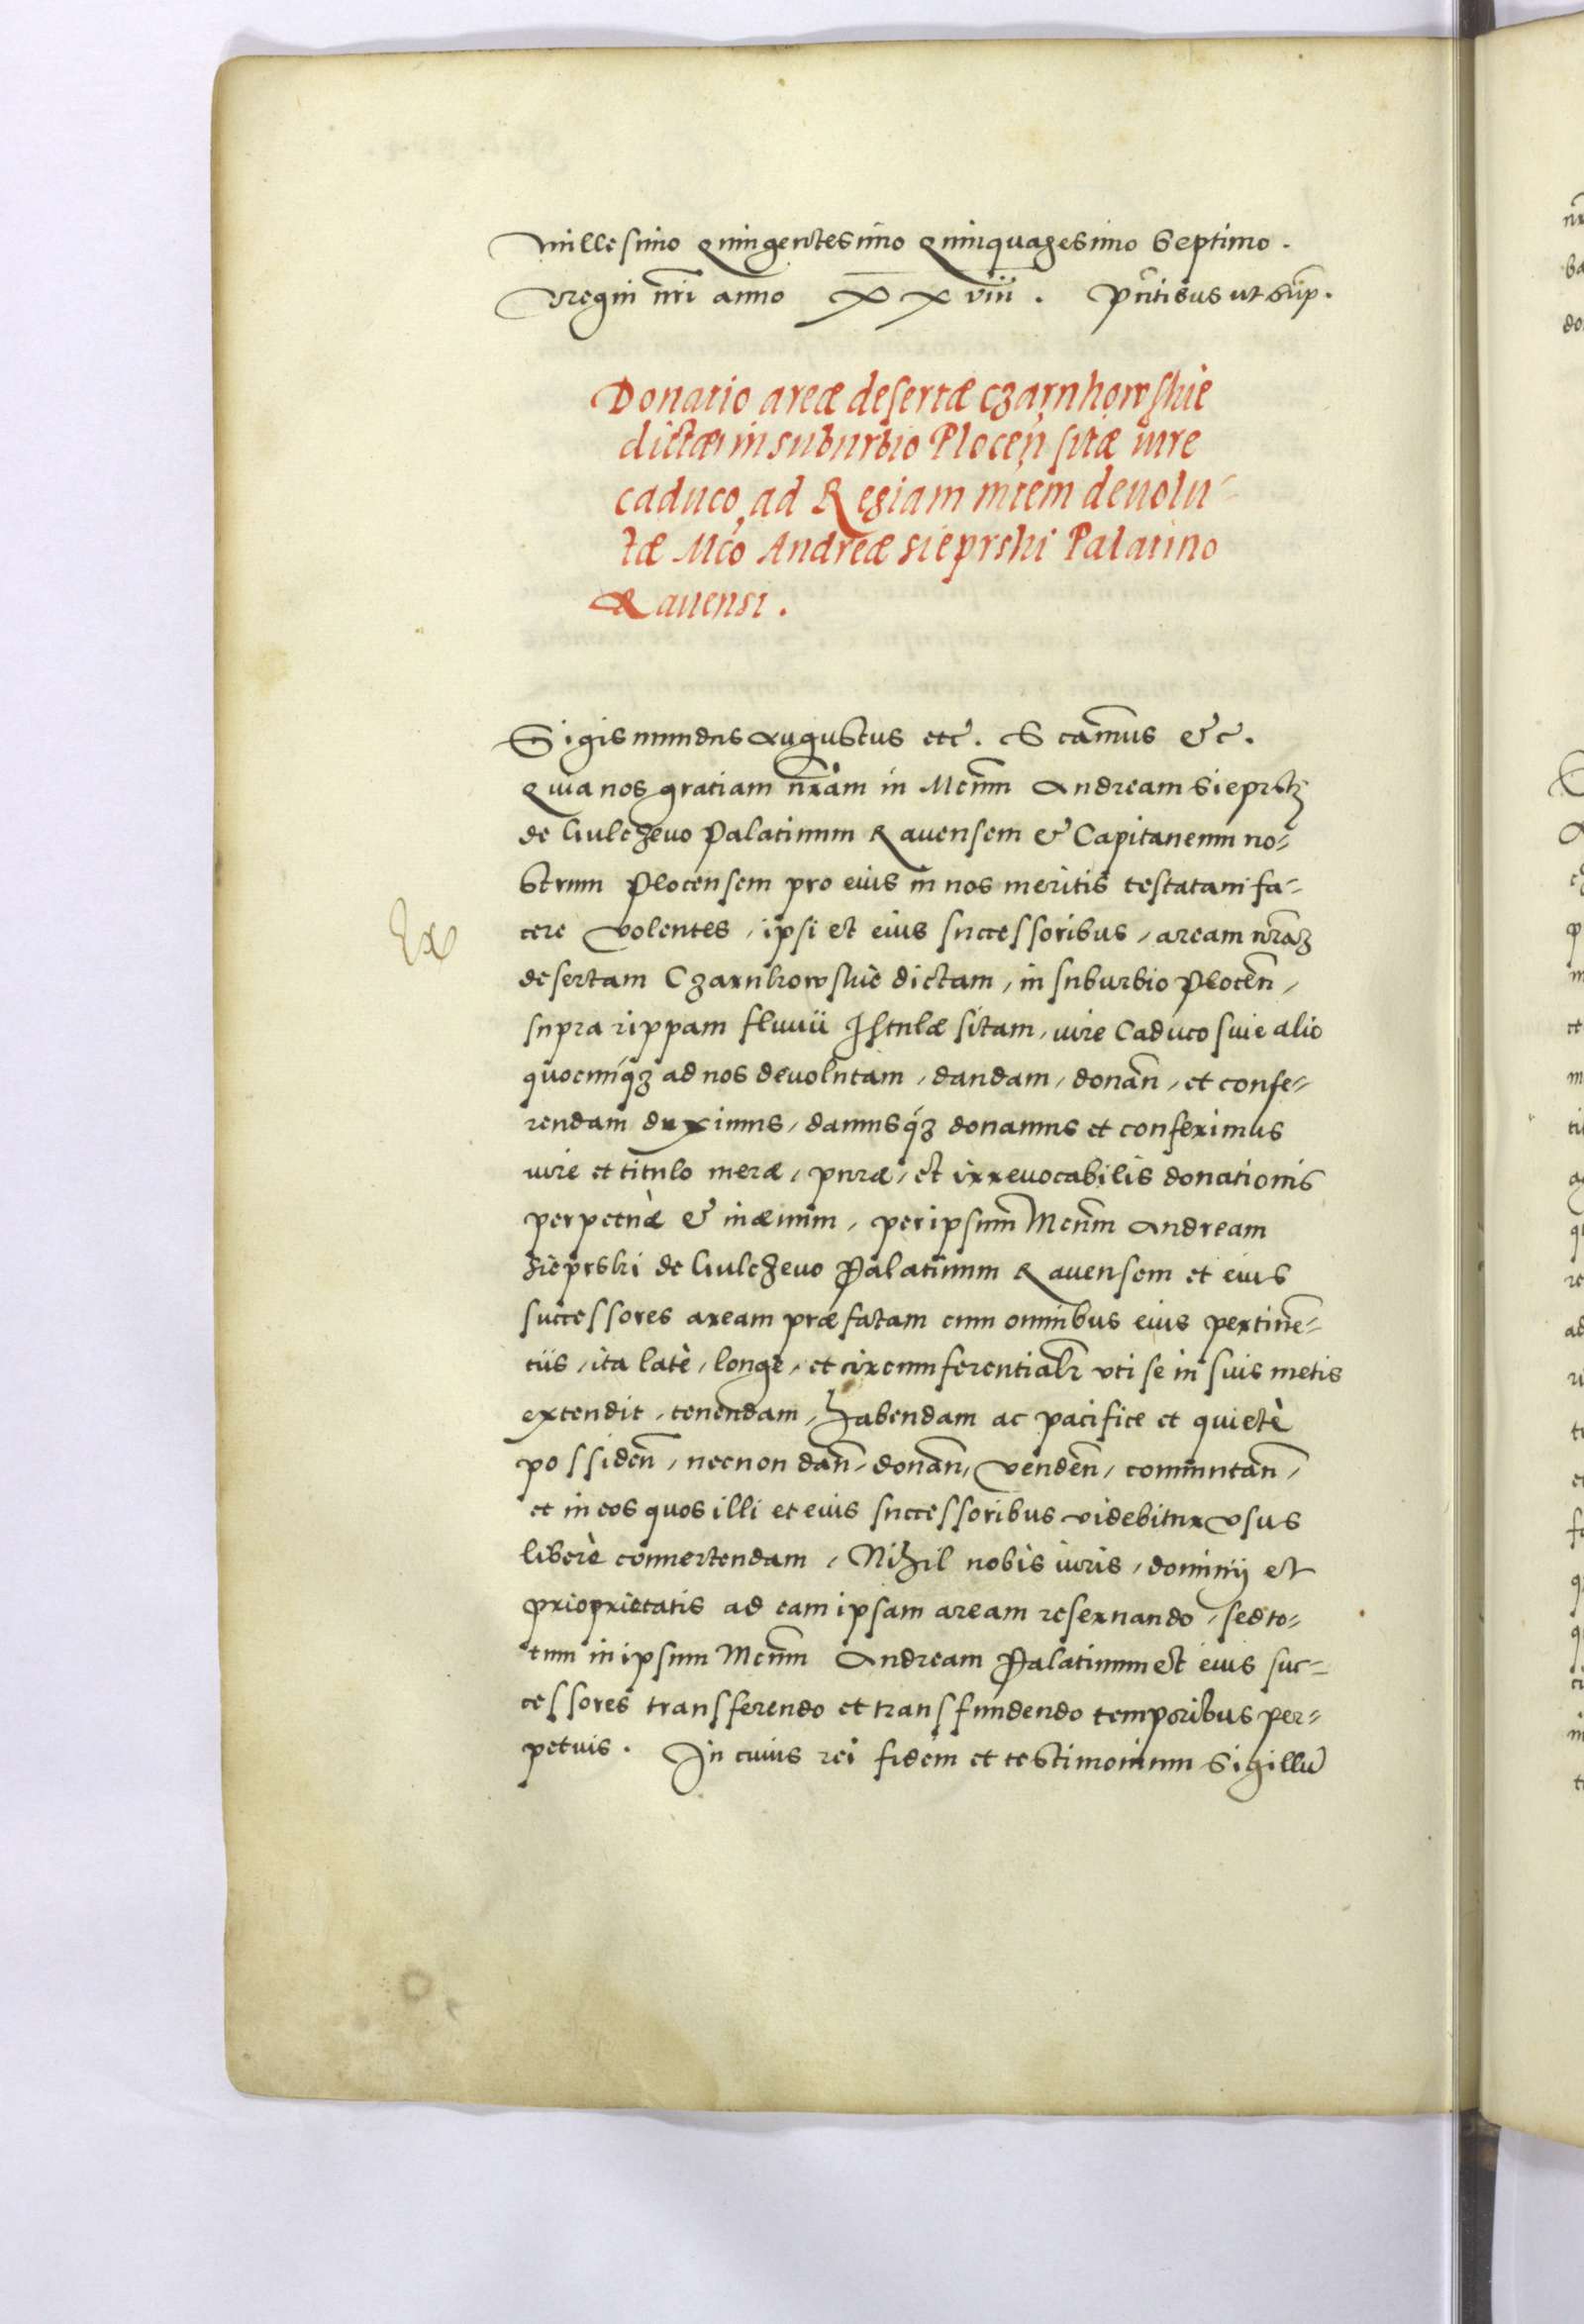 millesimo quingentesimo quinquagesimo Septimo.
Regni nr̃i anno XXviii. Pñtibus ut sup̃.
Donatio areæ desertæ czarnkowskie
dictæ in suburbio Plocen̄ sitæ iure
caduco, ad Regiam mtem deuolu-
tæ Mco Andreæ sieprski Palatino
Rauensi.
Sigismundus Augustus etc. S cam̄us &c.
Quia nos gratiam nr̃am in Mcum Andream Sieprsky
de Gulczeuo Palatinum Rauensem & Capitaneum no-
strum Plocensem pro eius in nos meritis testatam fa-
Ex
cere volentes, ipsi et eius successoribus, aream nr̃aʒ
desertam Czarnkowskie dictam, in suburbio Plocen̄,
supra rippam fluuii Istulæ sitam, iure Caduco siue alio
quocunq́ʒ ad nos deuolutam, dandam, donan̄, et confe-
rendam duximus, damusq́ʒ donamus et conferimus
iure et titulo meræ, puræ, et irreuocabilis donationis
perpetuæ & inæuum, per ipsum Mcum Andream
Sieprski de Gulczeuo Palatinum Rauensem et eius
successores aream præfatam cum omnibus eius pertinē-
tiis, ita latè, longè, et circumferentialr̃ vti se in suis metis
extendit, tenendam, habendam ac pacifice et quietè
possiden̄, necnon dan̄, donan̄, venden̄, commutan̄,
et in eos quos illi et eius successoribus videbitur vsus
liberè conuertendam, Nihil nobis iuris, dominij et
prioprietatis ad eam ipsam aream reseruando, sed to-
tum in ipsum Mcum Andream Palatinum et eius suc-
cessores transferendo et transfundendo temporibus per-
petuis. In cuius rei fidem et testimonium Sigillū